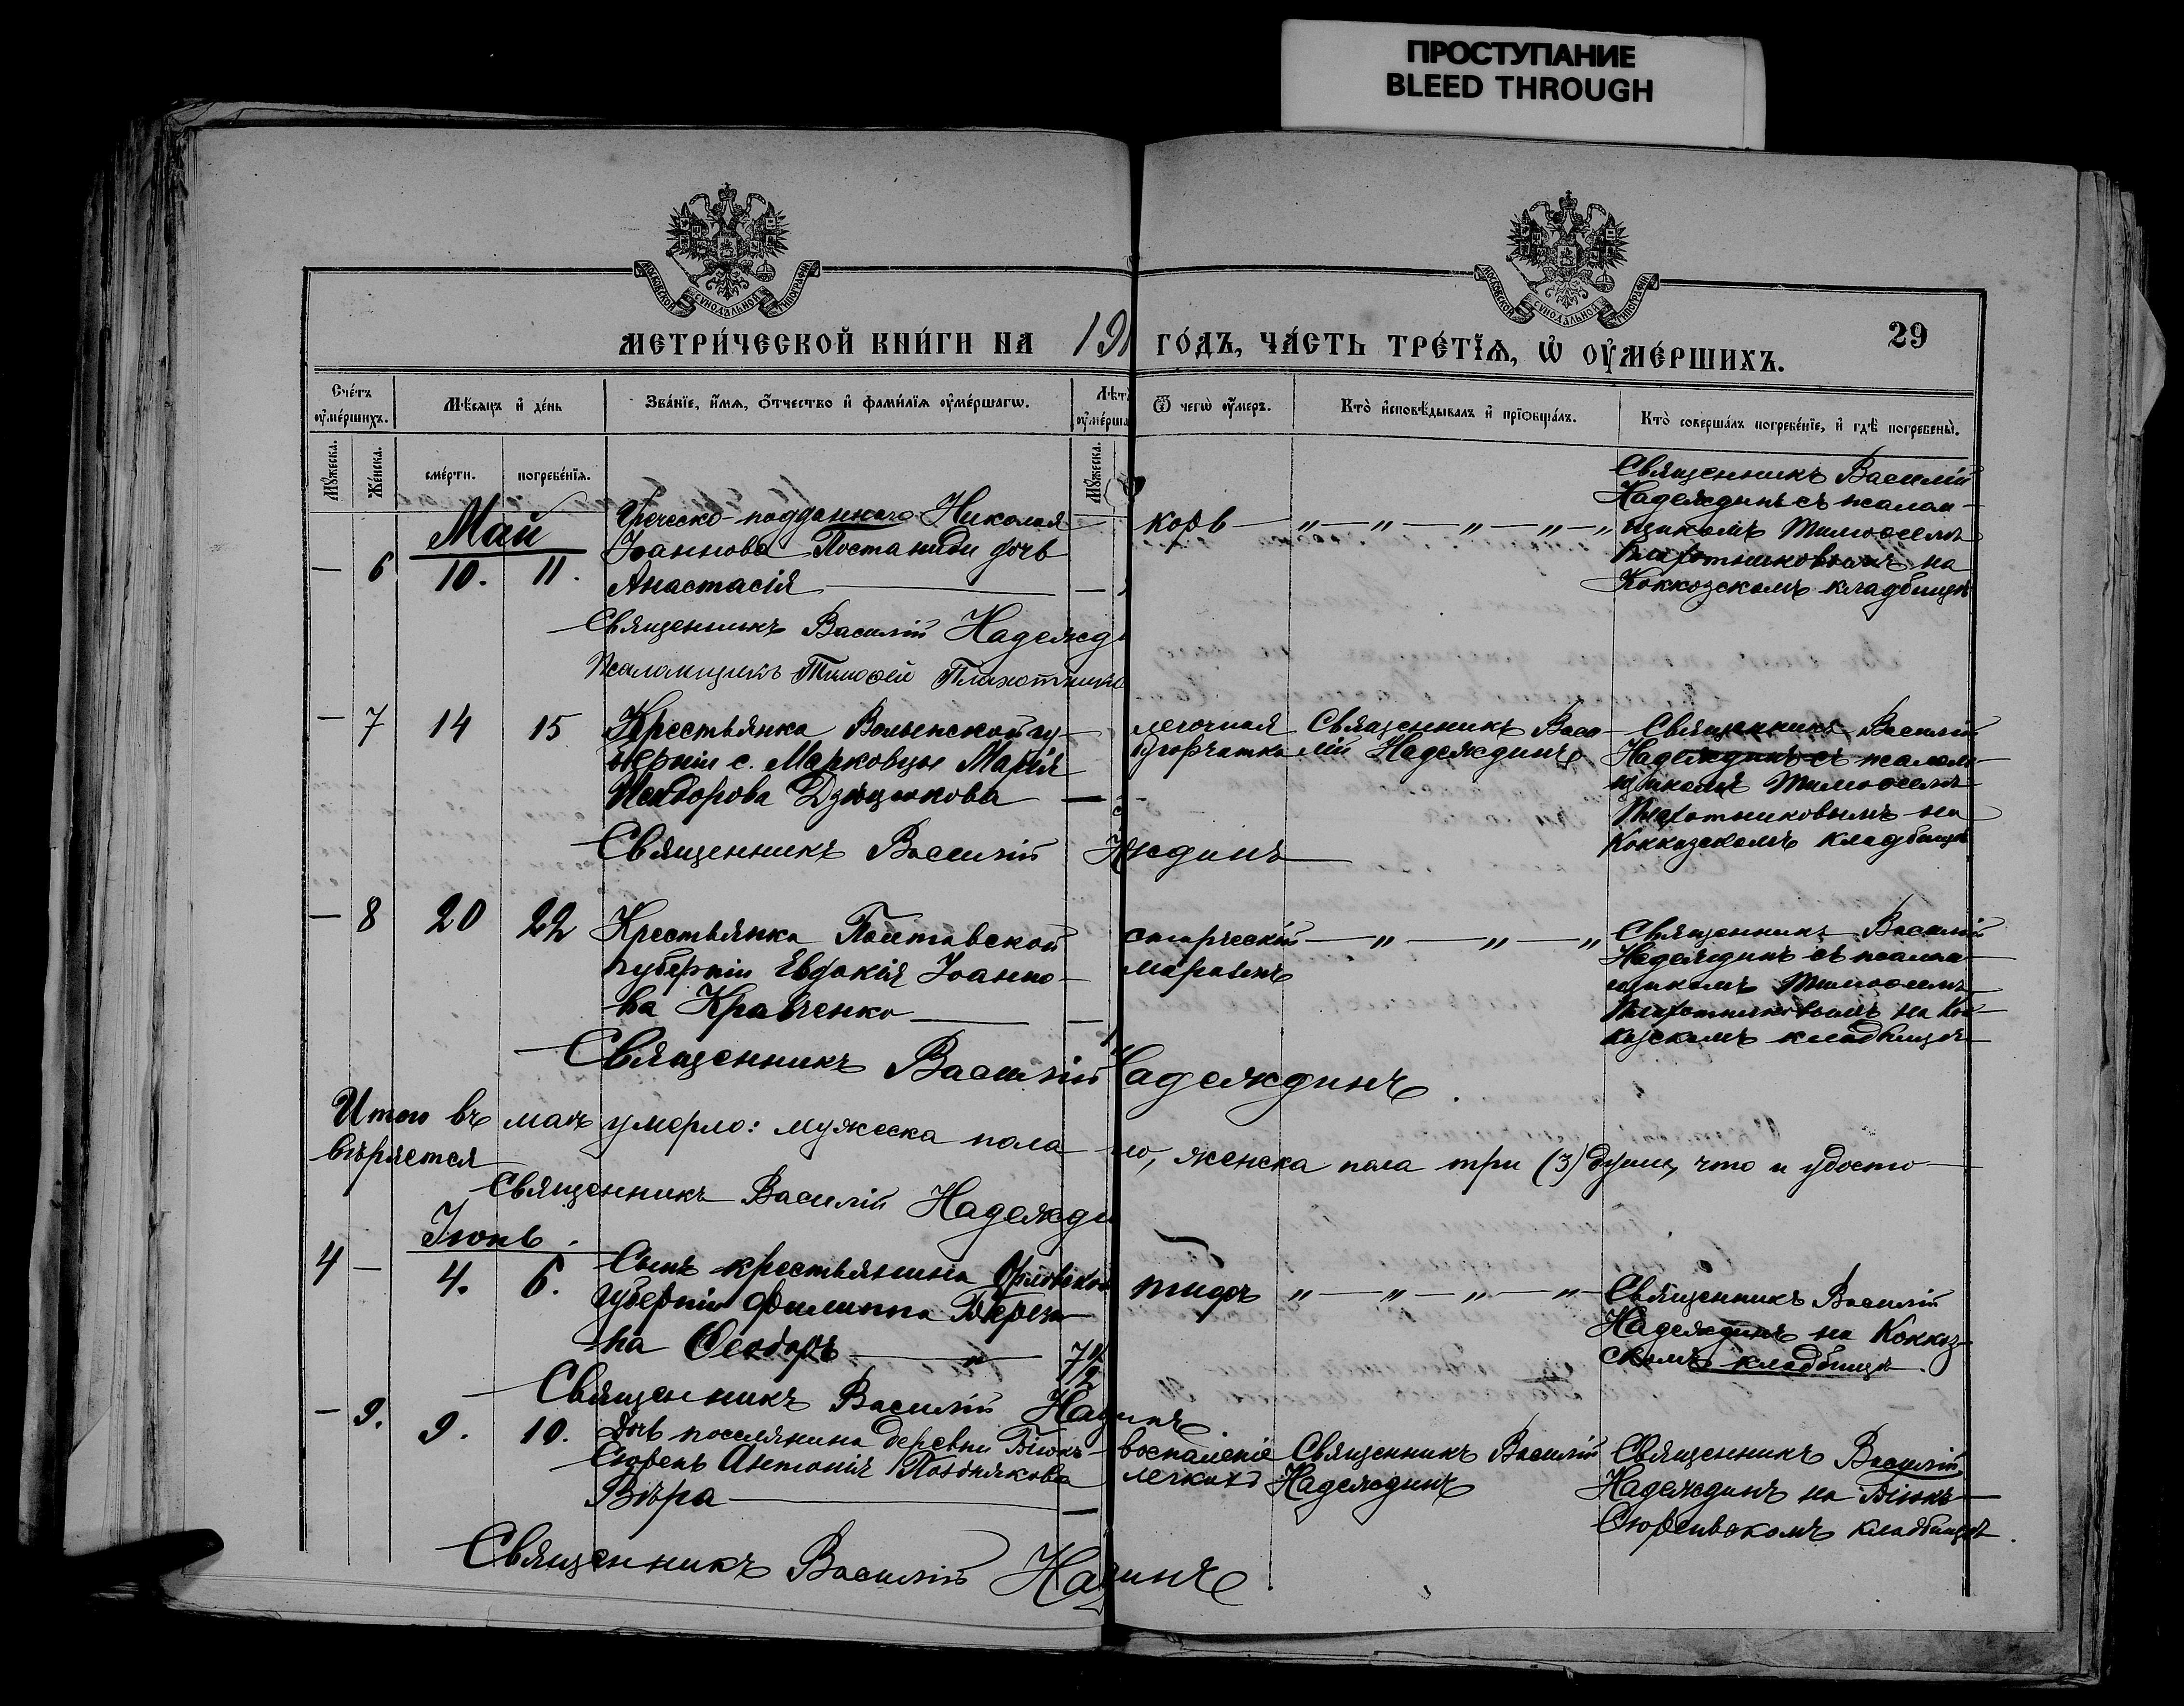 ПРОСТУПАНИЕ
BLEED THROUGH
МОСКОВСКОЙ СѴНОДАЛЬНОЙ ТИПОГРАФІИ
МОСКОВСКОЙ СѴНОДАЛЬНОЙ ТИПОГРАФІИ
МЕТРИ́ЧЕСКОЙ КНИ́ГИ НА 19
ГО́ДЪ, ЧА́СТЬ ТРЕ́ТЇѦ, Ѡ҆ ОУ҆МЕ́РШИХЪ.
29
Сче́тъ оу҆ме́ршихъ.
Мѣ́сяцъ и҆ де́нь
Зва́нїе, и҆́мѧ, ѻ҆́тчество и҆ фами́лїѧ оу҆ме́ршагѡ.
Лѣт
оу҆ме́рша
Ѿ чегѡ̀ оу҆́меръ.
Кто̀ и҆сповѣ́дывалъ и҆ прїѡбща́лъ.
Кто̀ соверша́лъ погребе́нїе, и҆ гдѣ̀ погребены̀.
Мꙋ́жеска.
Же́нска.
сме́рти.
погребе́нїѧ.
Мꙋ́жеска.
Май
— 6 10. 11.
Греческо-подданнаго Николая
Іоаннова Постаниди дочь
Анастасія —
корь — „ — „ — „ — „ — „
Священникъ Василій
Надеждинъ съ псалом-
щикомъ Тимоѳеемъ
Плахотниковымъ на
Коккозскомъ кладбищѣ
Священникъ Василій Надежд
Псаломщикъ Тимоѳей Плахотнико
— 7 14 15
Крестьянка Волынской гу-
берніи с. Марковцы Марія
Исидорова
легочная
бугорчатка
Священникъ Васи-
лій Надеждинъ
Священникъ Василій
Надеждинъ съ псалом-
щикомъ Тимоѳеемъ
Плахотниковымъ на
Коккозскомъ кладбищѣ
Священникъ Василій Н ждинъ
— 8 20 22
Крестьянка Полтавской
губерніи Евдокія Іоанно-
ва Кравченко —
старческій — „ — „ — „
маразмъ
Священникъ Василій
Надеждинъ съ псалом-
щикомъ Тимоѳеемъ
Плахотниковымъ на Кок-
козскомъ кладбищѣ
Священникъ Василій Надеждинъ.
Итого въ маѣ умерло: мужеска пола но, женска пола три (3) души, что и удосто-
вѣряется
Священникъ Василій Надежди
Іюнь.
4 — 4. 6.
Сынъ крестьянина Орловской
губерніи Филиппа
на Ѳеодоръ — „ — 7 1/2
тифъ „ — „ — „ — „ —
Священникъ Василій
Надеждинъ на Коккоз-
скомъ кладбищѣ
Священникъ Василій Надинъ
— 9. 9. 10.
Дочь поселянина деревни Біюкъ-
Сюрень Антонія Позднякова
Вѣра —
воспаленіе
легкихъ
Священникъ Василій
Надеждинъ
Священникъ Василій
Надеждинъ на Біюкъ-
Сюреньскомъ кладбищѣ.
Священникъ Василій Надинъ.